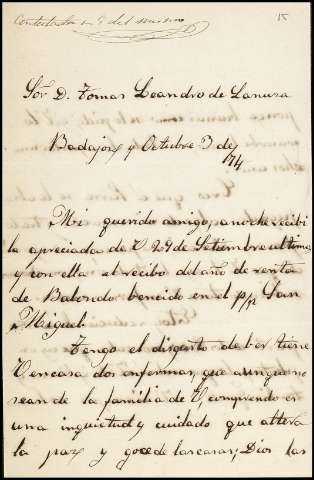 Contestada en 9 del mismo
15
Sor. D. Tomas Leandro de Lanuza
Badajoz y Octubre 3 de /74
Mi querido amigo, anoche recibi
la apreciada de V 29 de Setiembre ultimo
y con ella el recibo del año de renta
de Balondo bencido en el p/p San
Miguel.
Tengo el disgusto de ber tiene
V encasa dos enfermas, que aunque no
sean de la familia de V comprendo es
una inquietud y cuidado que altera
la paz y goce de las casas; Dios las